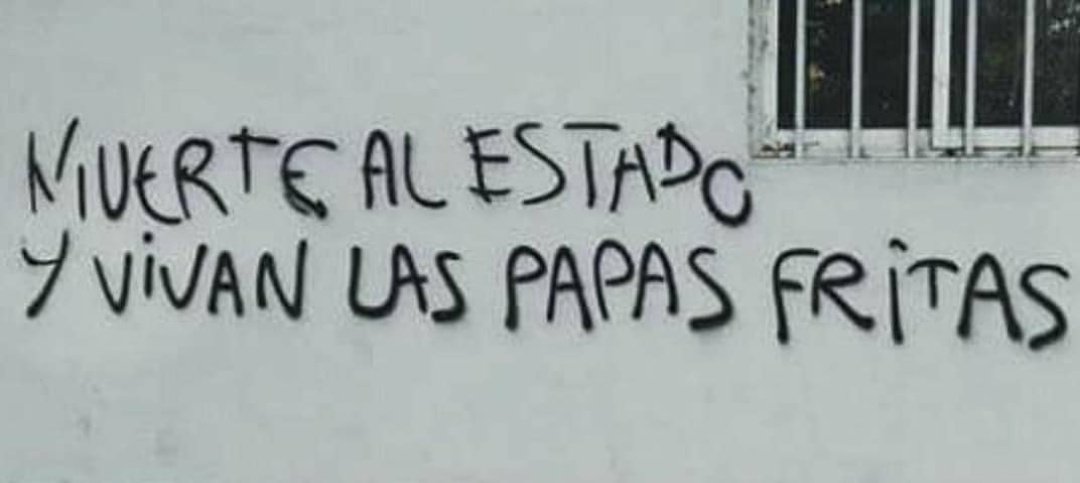 MUERTE AL ESTADO
Y ViVAN LAS PAPAS FRiTAS